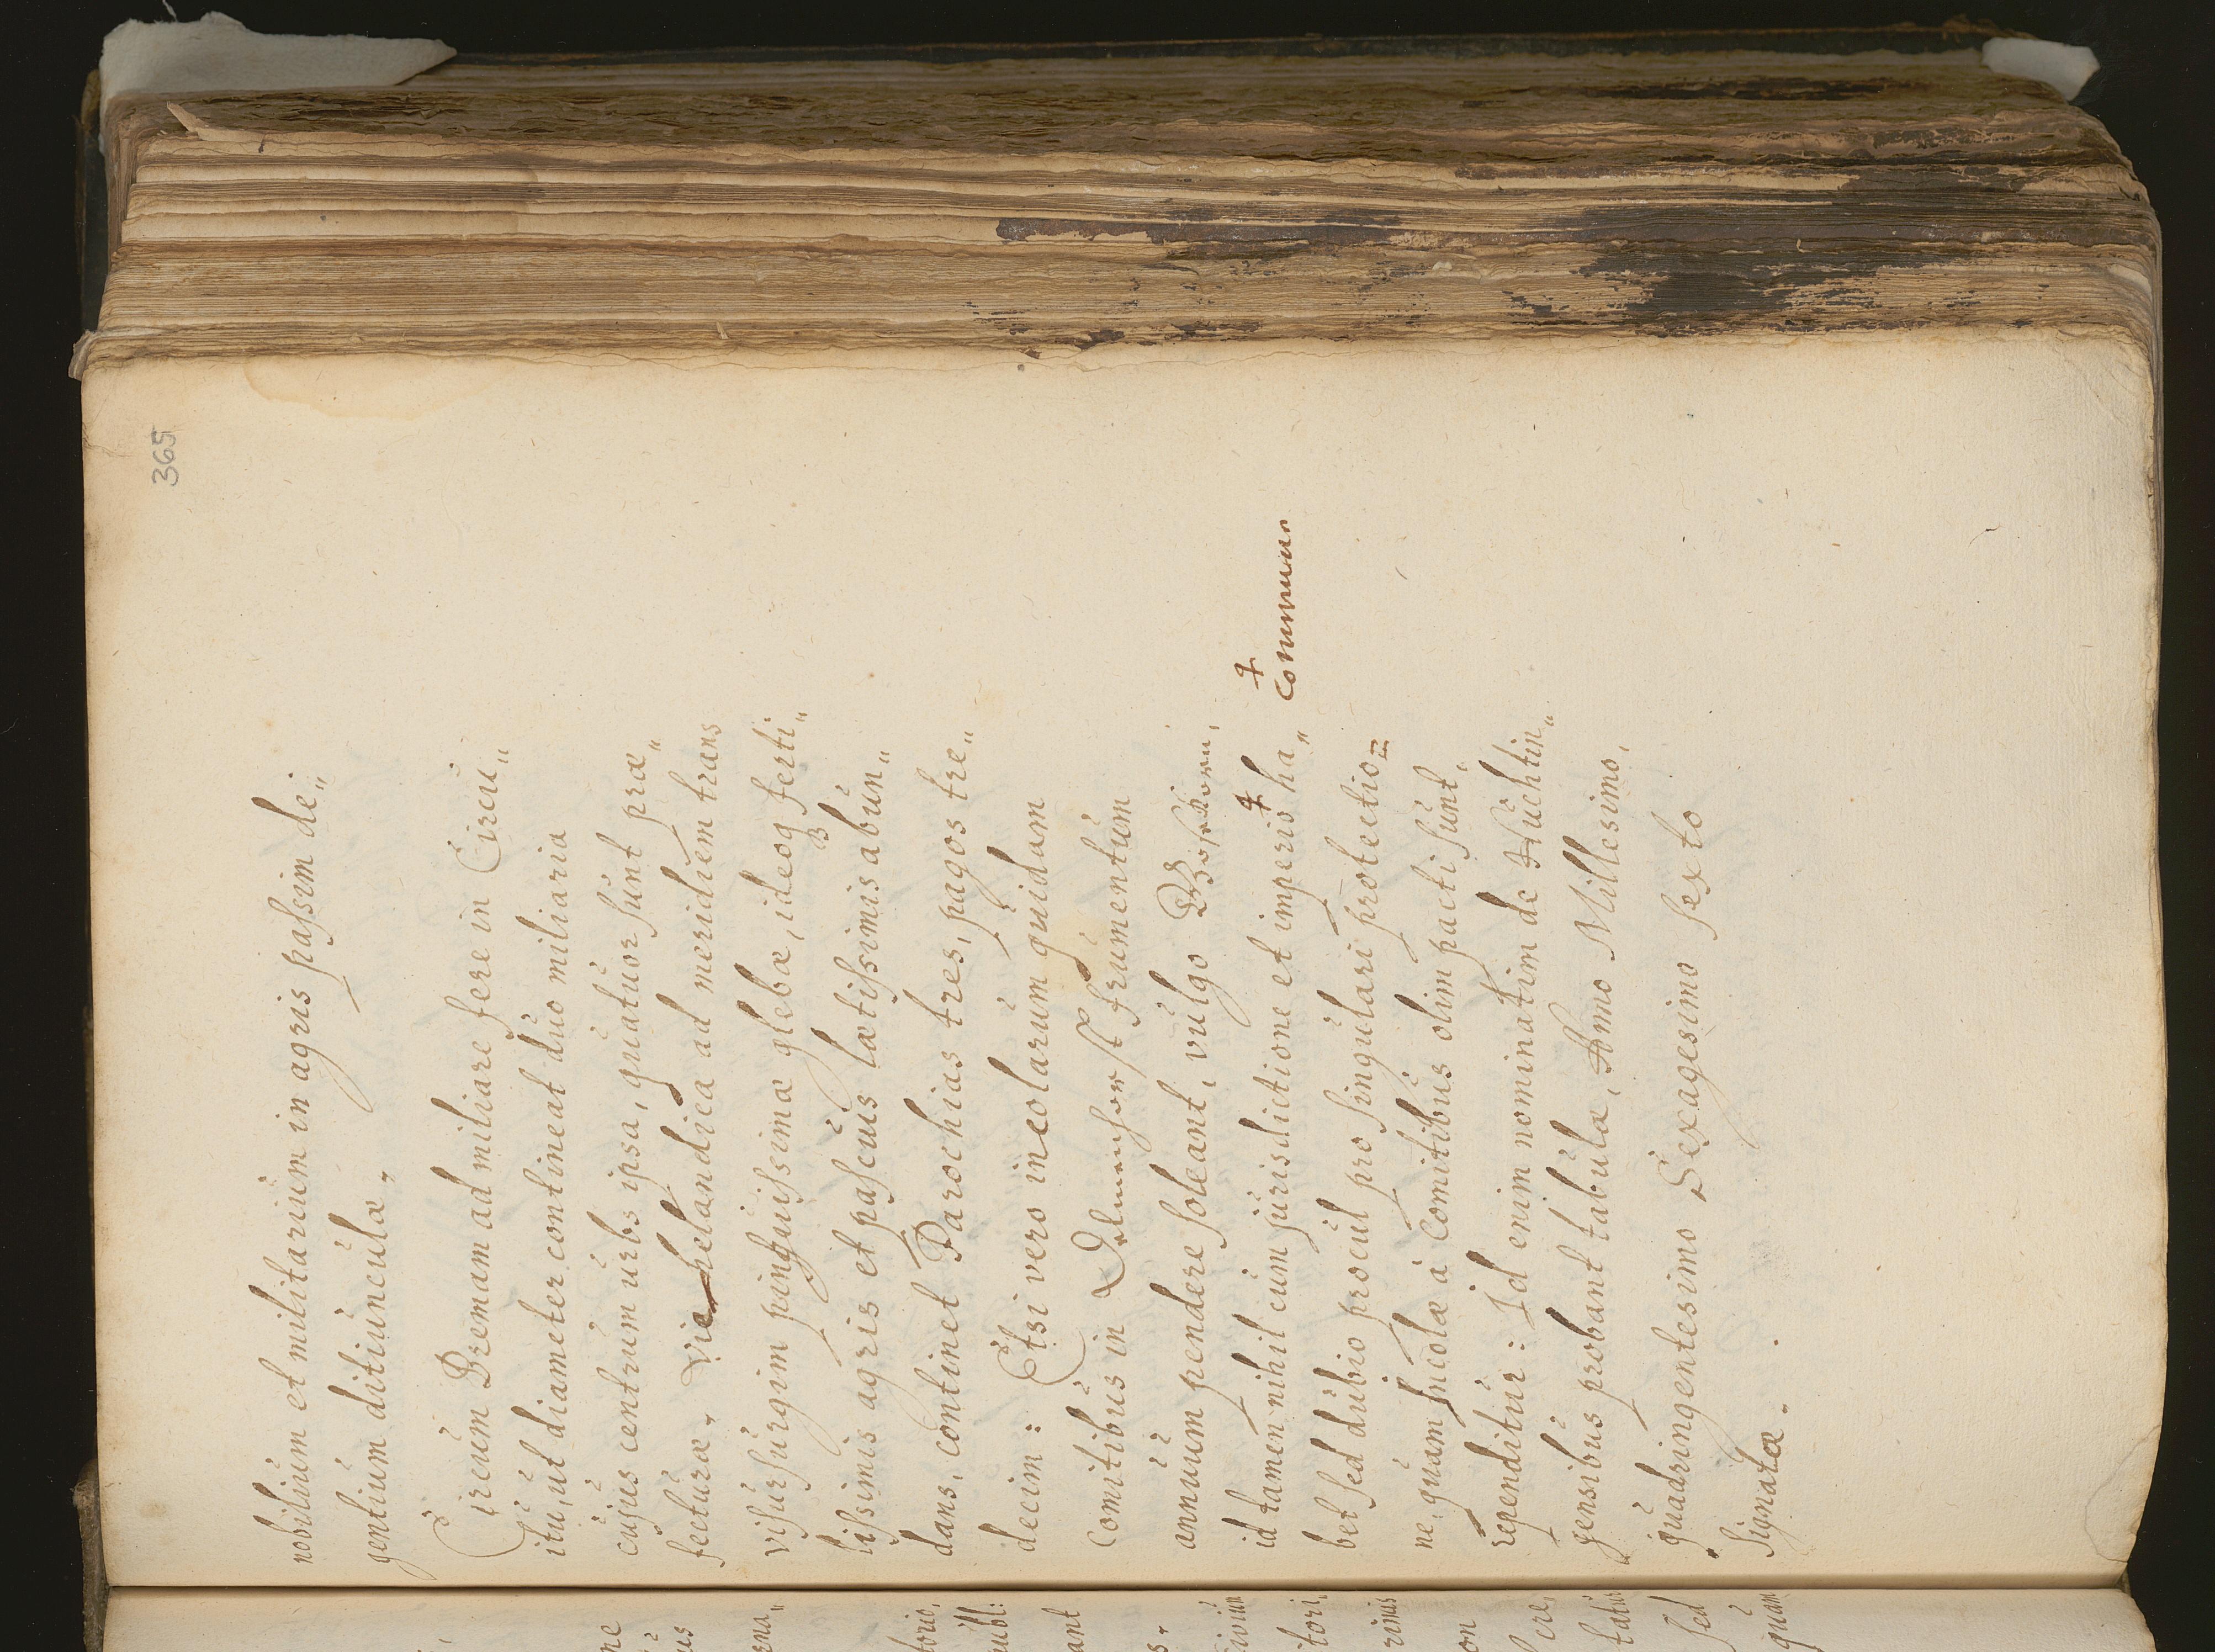 365
nobilium et militarium in agris passim de„
gentium ditiunculæ.
Circum Bremam ad miliare fere in Circu„
itu, ut diameter contineat duo miliaria
cujus centrum urbs ipsa, quatuor sunt præ„
fecturæ. Viehelandica ad meridiem trans
visurgim pinguissimæ glebæ, ideoqȝ ferti„
lissimis agris et pascuis lætissimis abun„
dans, continet Parochias tres, pagos tre„
decim: Etsi vero incolarum quidam
Comitibus in Delmenhorst frumentum
annuum pendere soleant, vulgo
id tamen nihil cum jurisdictione et imperio ha„
communi
bet sed dubio procul pro singulari protectio=
ne, quam Incolæ à Comitibus olim pacti sunt,
rependitur: Id enim nominatim de Huchtin„
gensibus probant tabulæ, Anno Millesimo,
quadringentesimo Sexagesimo sexto
Signatæ.